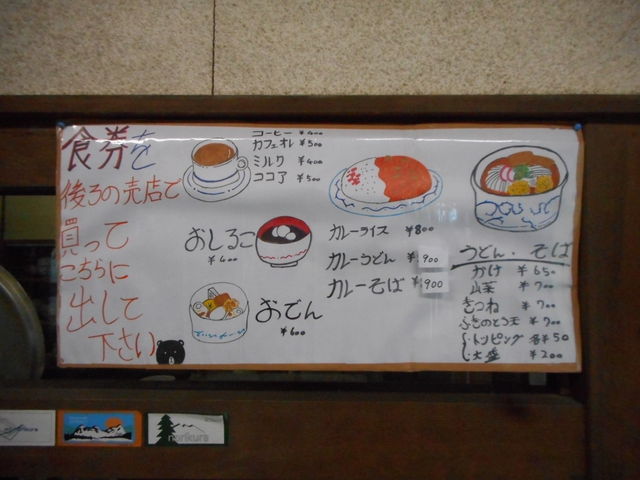 食券を
後ろの売店で
買って
こちらに
出して
下さい
コーヒー ¥400
カフェオレ ¥500
ミルク ¥400
ココア ¥500
おしるこ
¥600
おでん
¥600
カレーライス ¥800
カレーうどん ¥900
カレーそば ¥900
うどん・そば
かけ ¥650
山菜 ¥700
きつね ¥700
ふきのとう天 ¥700
トッピング 各¥50
大盛 ¥200
norikura